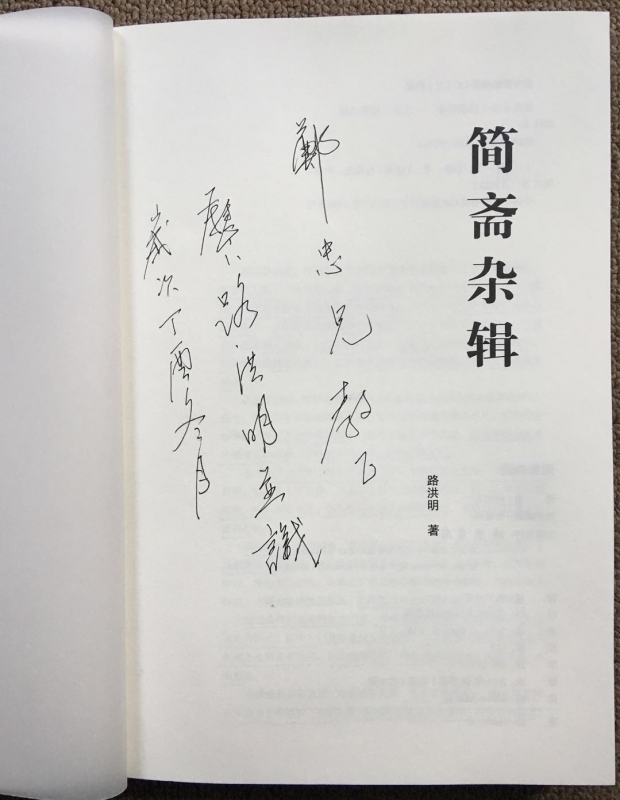 简斋杂辑
路洪明 著
鄭忠兄教正
路洪明並識
歲次丁酉冬月